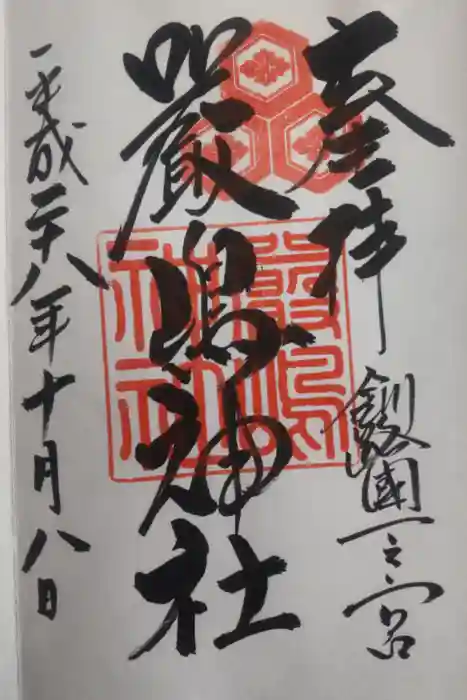 奉拝
國一之宮
嚴島神社
平成二十八年十月八日
嚴島
神社